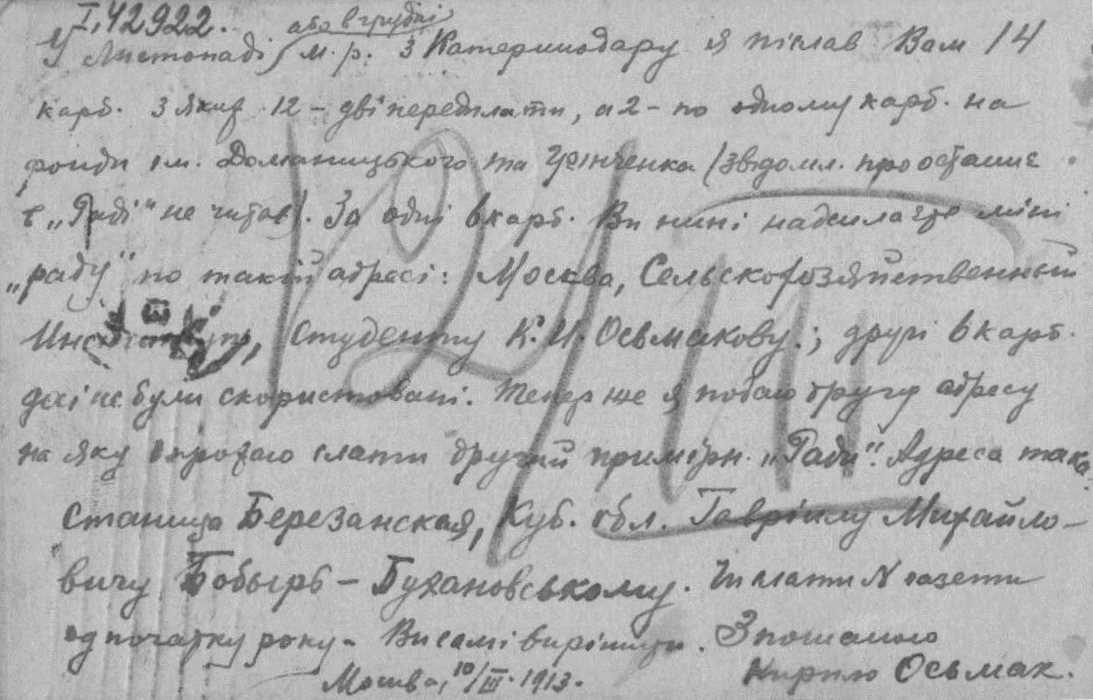 I, 42922.
або в грудні
У Листопаді м. р. з Катеринодару я післав Вам 14
карб. З яких 12 – дві передплати, а 2 – по одному карб. на
фонди ім. Доманицького та Грінченка (звідомл. про останнє
в „Раді" не читав). За одні 6 карб. Ви нині надсилаєте міні
„раду" по такій адресі: Москва, Сельскохозяйственный
Институт, Студенту К. И. Осьмакову.; другі 6 карб.
досі не були скористовані. Тепер же я подаю другу адресу
на яку прохаю слати другий примірн. „Ради". Адреса така
станица Березанская, Куб. обл. Гавріилу Михайло-
вичу Бобырь – Бухановському. Чи слати N газети
од початку року – Ви самі вирішити. З пошаною
Москва, 10/III. 1913. Кирило Осьмак.